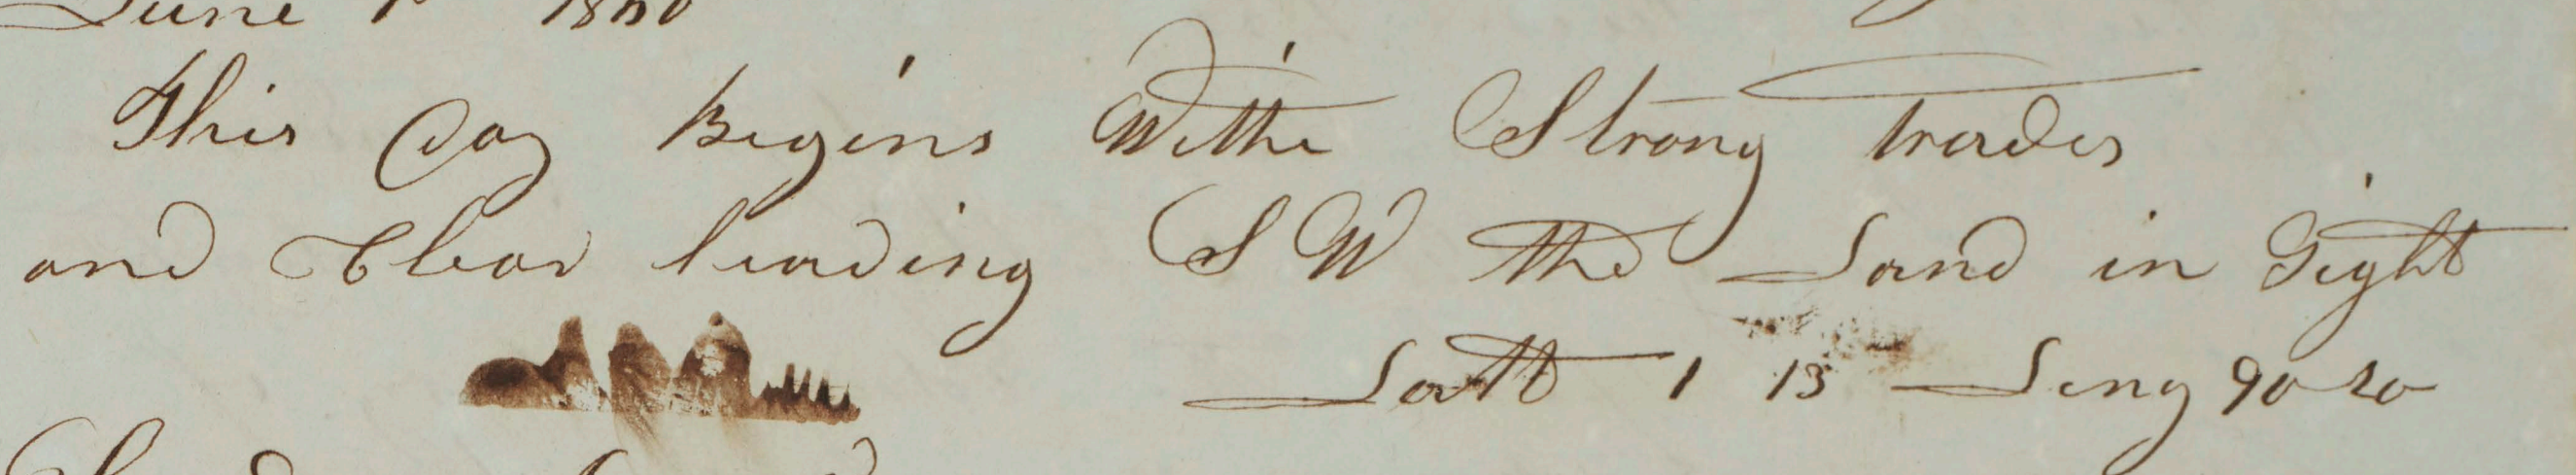 June 1
This Day Begins Withe Strong trades
and Clear heading S W the Land in Sight
Latt 1 13 Long 90 20